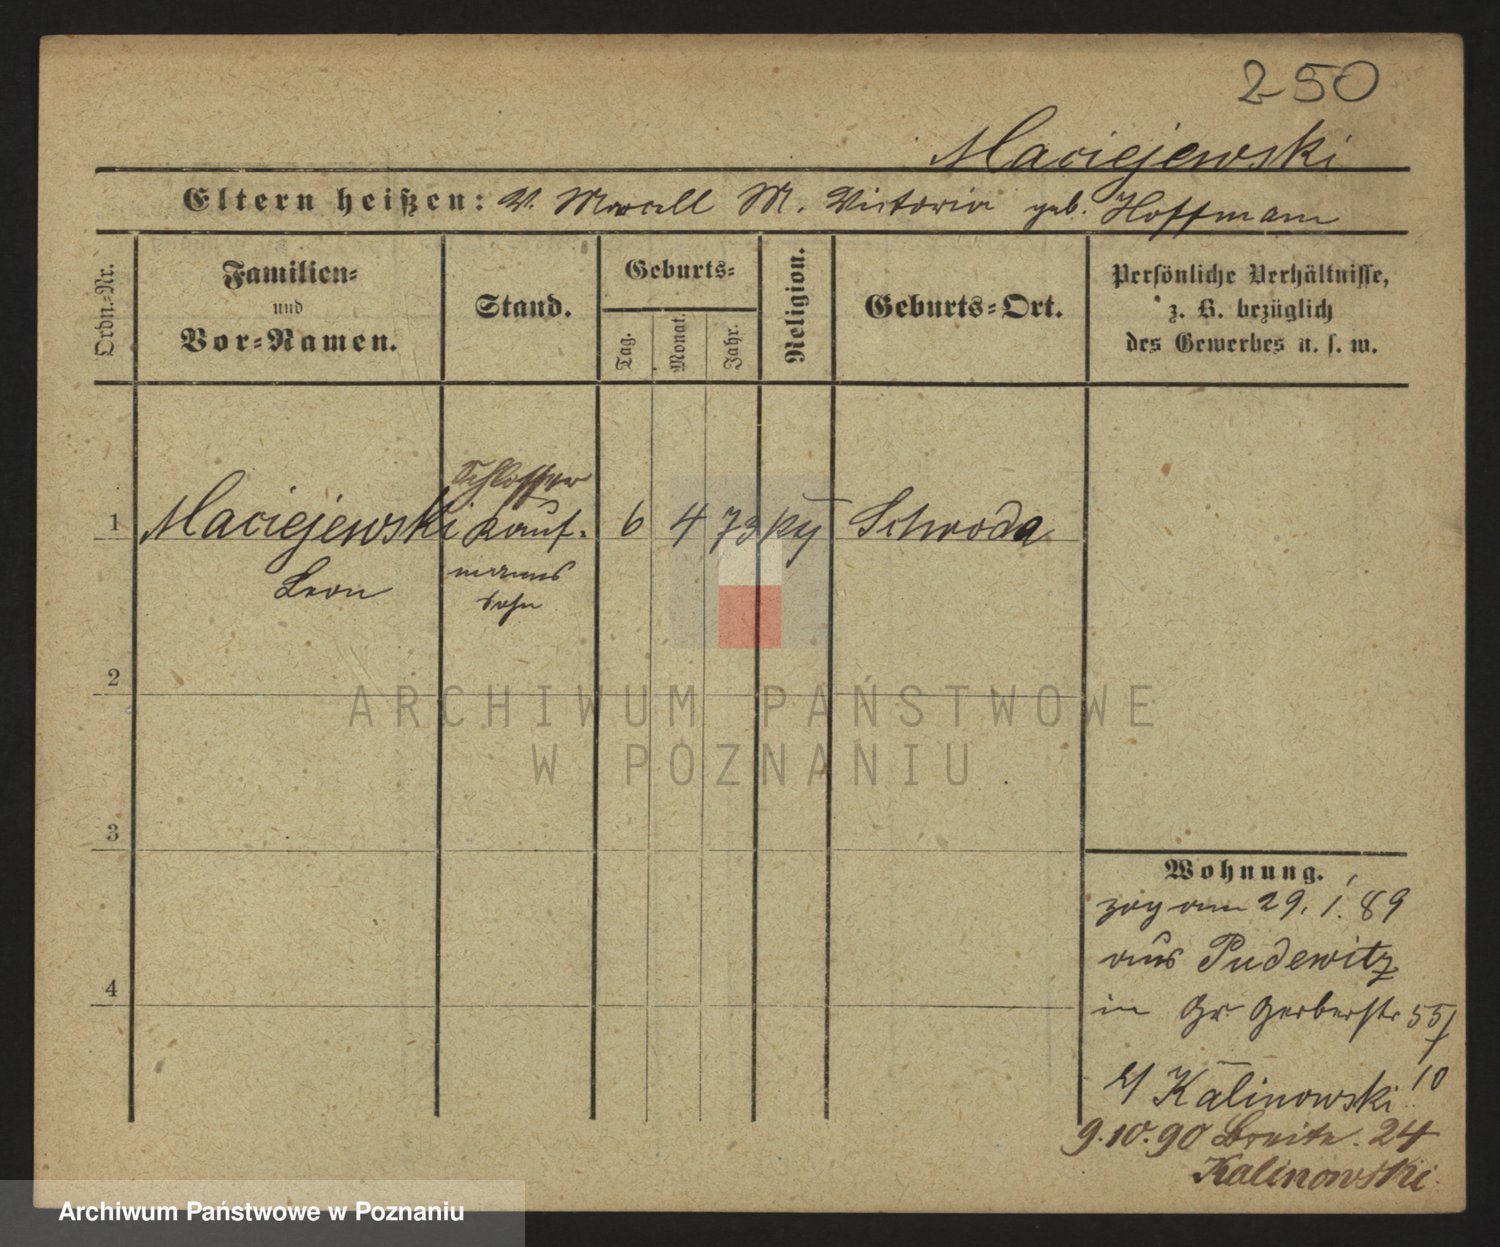 250
Maciejewski
Eltern heißen: V. Marcell M. Victoria geb. Hoffmann
Ordn.=Nr.
Familien=
und
Vor=Namen.
Stand.
Geburts=
Tag.
Monat.
Jahr.
Religion.
Geburts=Ort.
Persönliche Verhältnisse,
z. B. bezüglich
des Gewerbes u. s. w.
Schlosser
1 Maciejewski Kauf= 6 4 73 Schroda
Leon
manns
sohn
2
3
4
ARCHIWUM PAŃSTWOWE
W POZNANIU
Wohnung.
zog am 29. 1. 89
aus Pudewitz
in Gr. Gerberstr 55/
10
b/ Kalinowski
9.10.90 Breite. 24
Kalinowski
Archiwum Państwowe w Poznaniu